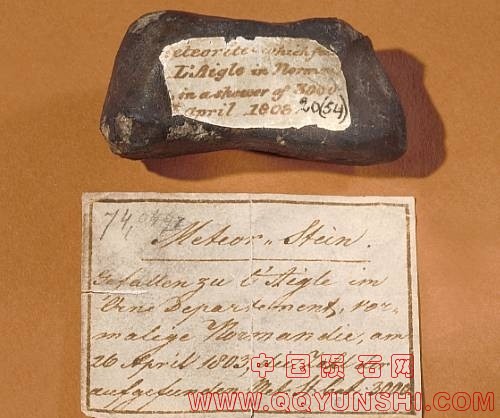 eteorite which f
L'Aigle in Norm
in a shower of 3000
April 1803. 20(54)
74,
Meteor-Stein.
Gefallen zu L'Aigle im
Orne Departement, vor-
malige Normandie, am
26 April 1803, die Zahl der
aufgefunden Met. St. bet. 3000
中国陨石网
WWW.QQYUNSHI.COM